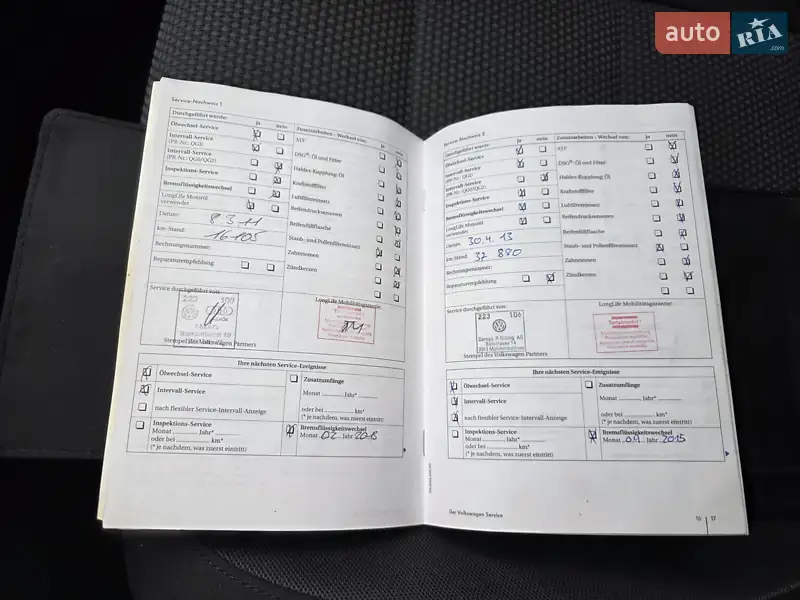 auto RIA .com
Service-Nachweis 1
Durchgeführt wurde: ja nein Zusatzarbeiten - Wechsel von: ja nein
Ölwechsel-Service
Intervall-Service
(PR-Nr.: QG1)
Intervall-Service
(PR-Nr.: QG0/QG2)
Inspektions-Service
Bremsflüssigkeitswechsel
LongLife Motoröl
verwendet
ATF
DSG®: Öl und Filter
Haldex-Kupplung: Öl
Kraftstofffilter
Luftfiltereinsatz
Reifendruckssensoren
Reifenfüllflasche
Staub- und Pollenfiltereinsatz
Zahnriemen
Zündkerzen
Datum: 8 3 11
km-Stand: 16 105
Rechnungsnummer:
Reparaturempfehlung
Service durchgeführt von:
LongLife Mobilitätsgarantie:
Stempel des Volkswagen Partners
Ihre nächsten Service-Ereignisse
Ölwechsel-Service
Intervall-Service
nach flexibler Service-Intervall-Anzeige
Inspektions-Service
Monat Jahr*
oder bei km*
(* je nachdem, was zuerst eintritt)
Zusatzumfänge
Monat Jahr*
oder bei km*
(* je nachdem, was zuerst eintritt)
Bremsflüssigkeitswechsel
Monat 02 Jahr 2013
Service-Nachweis 2
Durchgeführt wurde: ja nein Zusatzarbeiten - Wechsel von: ja nein
Ölwechsel-Service
Intervall-Service
(PR-Nr.: QG1)
Intervall-Service
(PR-Nr.: QG0/QG2)
Inspektions-Service
Bremsflüssigkeitswechsel
LongLife Motoröl
verwendet
ATF
DSG®: Öl und Filter
Haldex-Kupplung: Öl
Kraftstofffilter
Luftfiltereinsatz
Reifendruckssensoren
Reifenfüllflasche
Staub- und Pollenfiltereinsatz
Zahnriemen
Zündkerzen
Datum: 30.4.13
km-Stand: 37 880
Rechnungsnummer:
Reparaturempfehlung
Service durchgeführt von:
LongLife Mobilitätsgarantie:
223 106
Stempel des Volkswagen Partners
Ihre nächsten Service-Ereignisse
Ölwechsel-Service
Intervall-Service
nach flexibler Service-Intervall-Anzeige
Inspektions-Service
Monat Jahr*
oder bei km*
(* je nachdem, was zuerst eintritt)
Zusatzumfänge
Monat Jahr*
oder bei km*
(* je nachdem, was zuerst eintritt)
Bremsflüssigkeitswechsel
Monat 04 Jahr 2015
Der Volkswagen Service
16 17